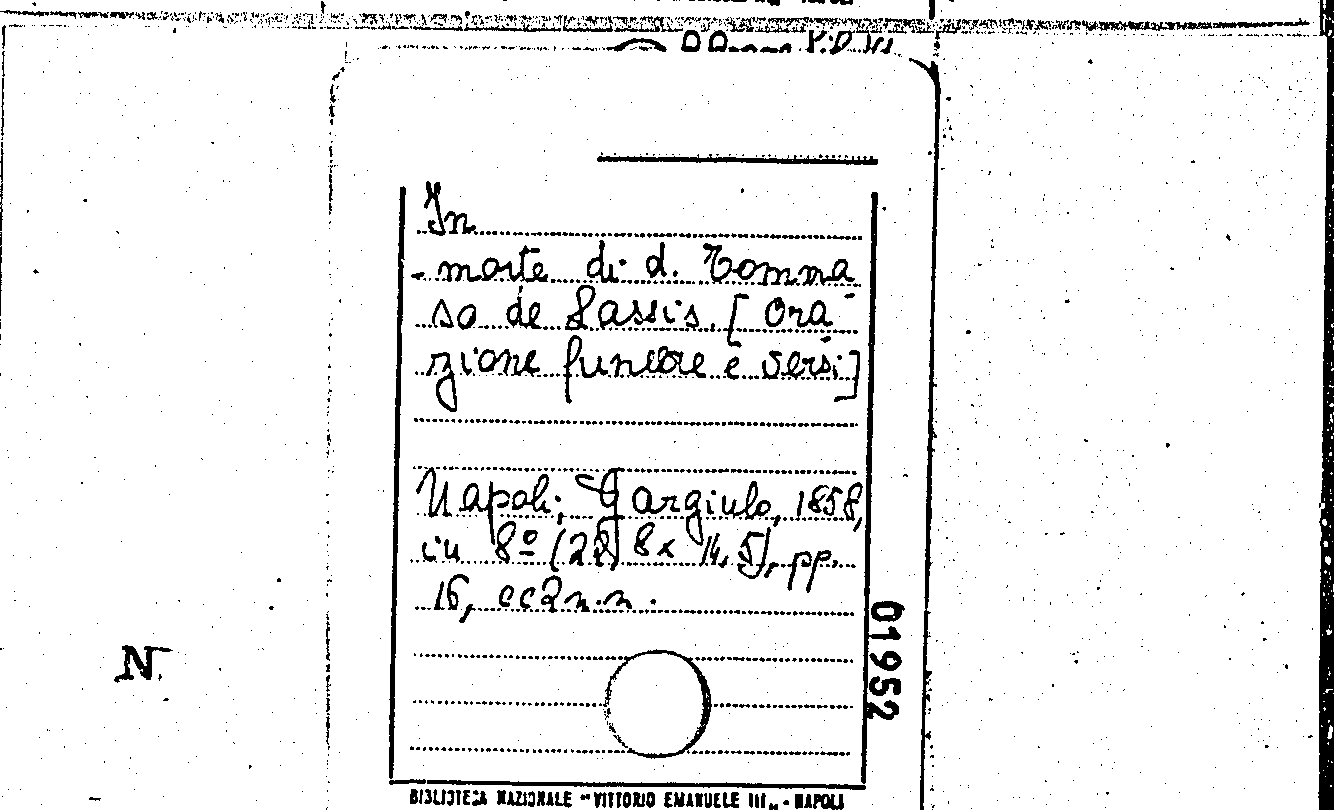 In
morte di d. Tomma-
so de Sassis. [Ora-
zione funebre e versi]
Napoli, Gargiulo, 1858,
in 8º (22, 8 x 14, 5), pp.
16, cc 2 n.n.
01952
N.
BIBLIOTECA NAZIONALE "VITTORIO EMANUELE III" - NAPOLI